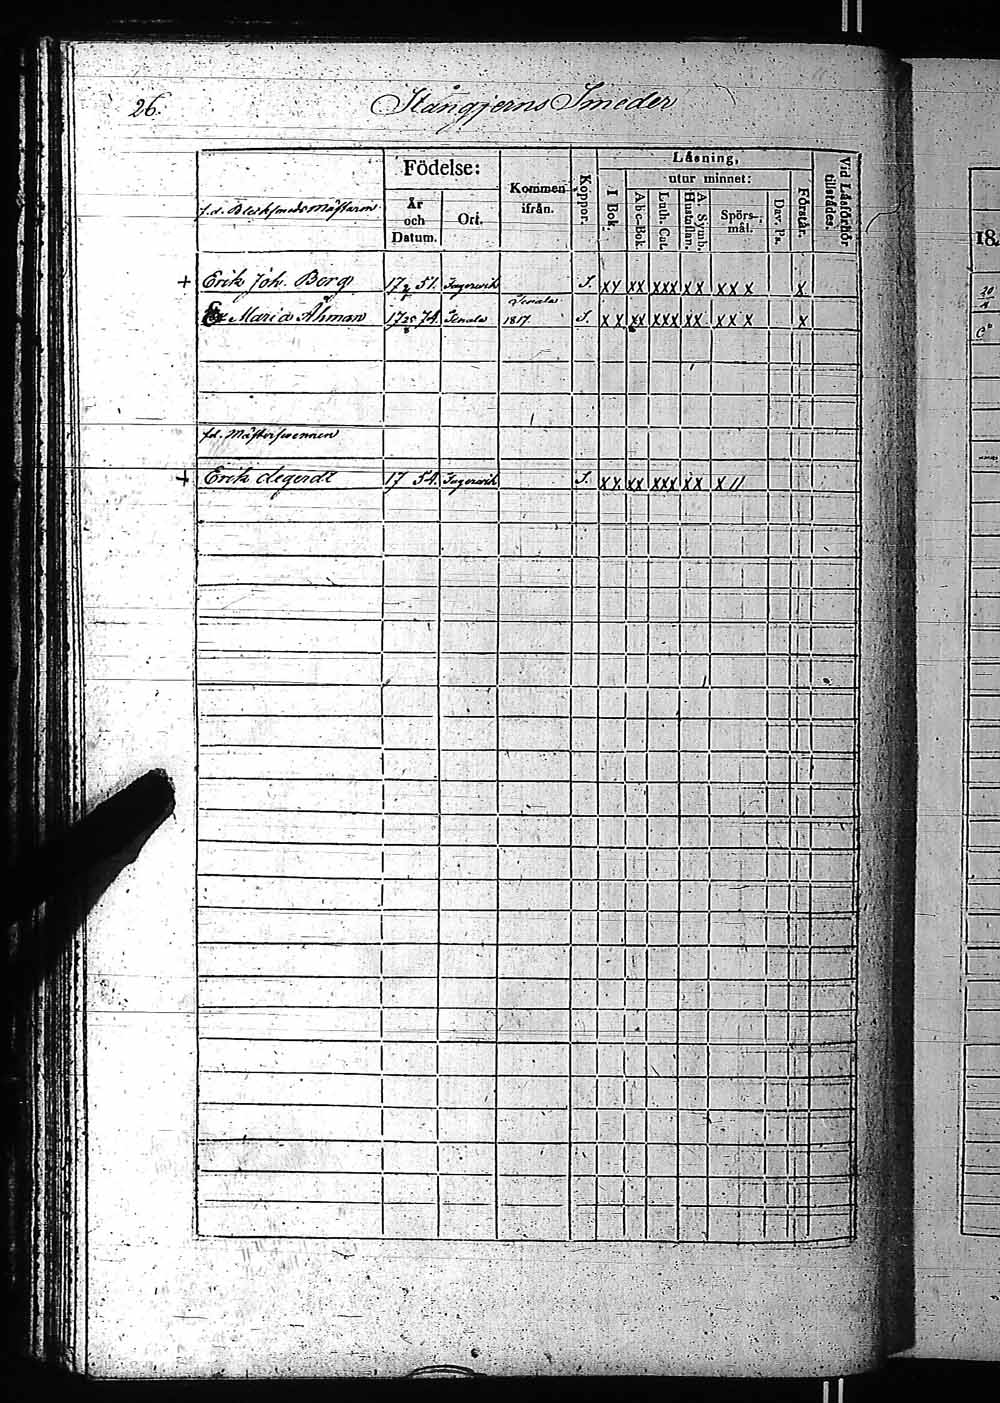 26. Stångjerns Smeder
Födelse: Kommen ifrån. Koppor. Läsning, Vid Läsförhör tillstädes.
utur minnet:
År och Datum. Ort. I Bok. Abc-Bok. Luth. Cat. A. Symb. Hustaflan. Spörs-mål. Dav. Ps. Förstår.
f.d. Blecksmedsmästaren
+ Erik Joh. Berg 17 51. Fagervik S. xx xx xxx xx xxx x
Tenala
Maria Åhman 17 74. Tenala 1817. S. xx xx xxx xx xxx x
f.d. Mästersvennen
+ Erik Degerdt 17 54. Fagervik S. xx xx xxx xx x11
18.